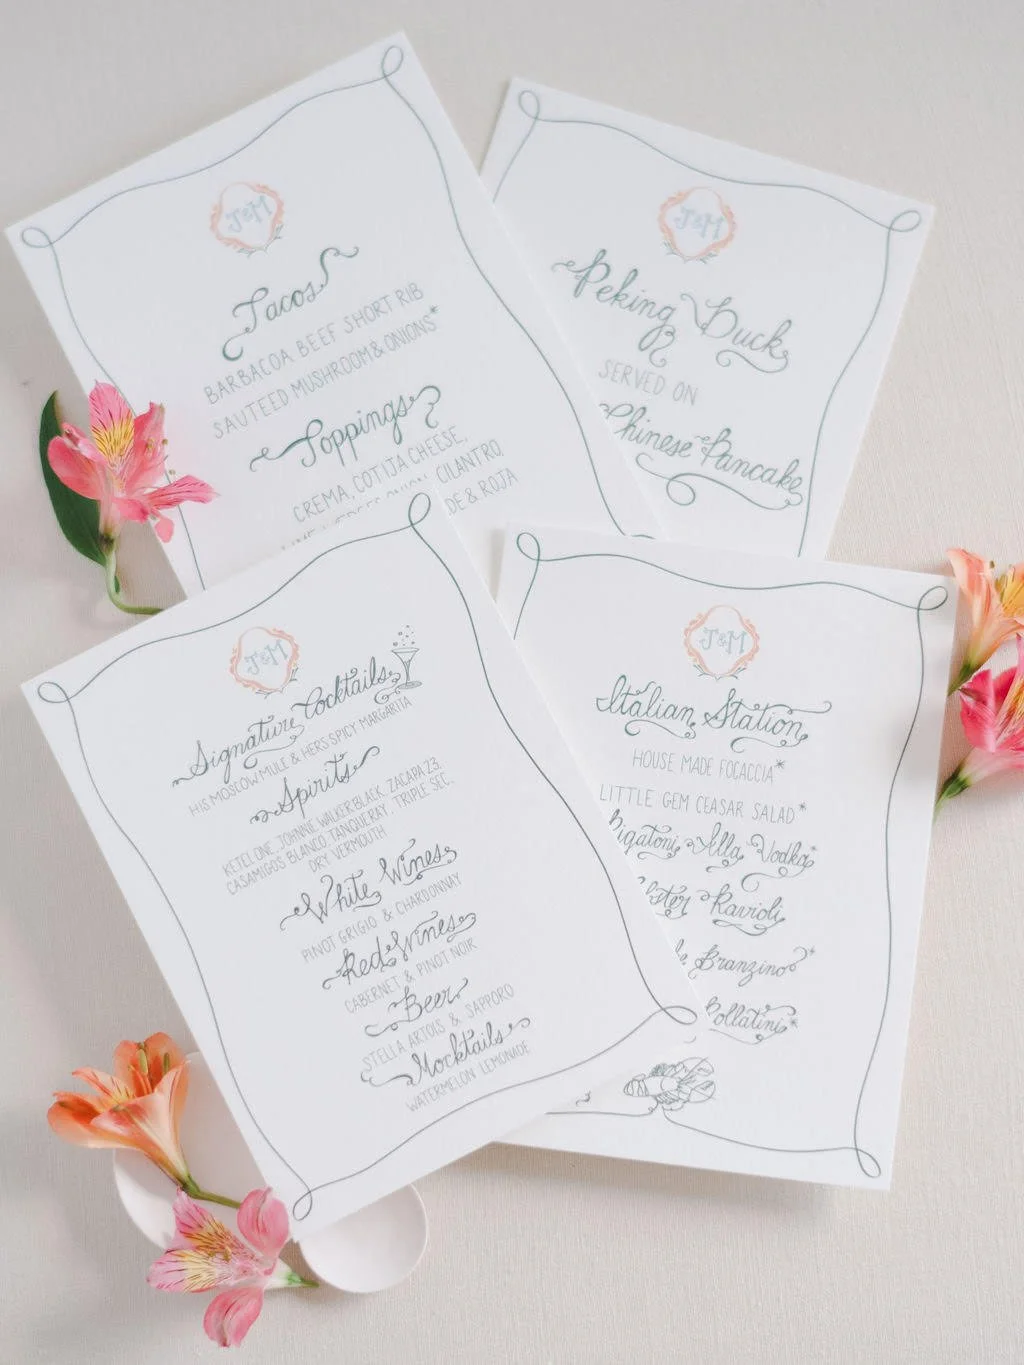 J&M
Tacos
BARBACOA BEEF SHORT RIB
SAUTEED MUSHROOM & ONIONS*
Toppings
CREMA, COTIJA CHEESE,
CILANTRO,
& ROJA
J&M
Peking Duck
SERVED ON
Chinese Pancake
J&M
Signature Cocktails
HIS MOSCOW MULE & HERS SPICY MARGARITA
Spirits
KETEL ONE, JOHNNIE WALKER BLACK, ZACAPA 23,
CASAMIGOS BLANCO, TANQUERAY, TRIPLE SEC,
DRY VERMOUTH
White Wines
PINOT GRIGIO & CHARDONNAY
Red Wines
CABERNET & PINOT NOIR
Beer
STELLA ARTOIS & SAPPORO
Mocktails
WATERMELON LEMONADE
J&M
Italian Station
HOUSE MADE FOCACCIA*
LITTLE GEM CEASAR SALAD*
Rigatoni Alla Vodka*
Ravioli
Branzino*
Rollatini*